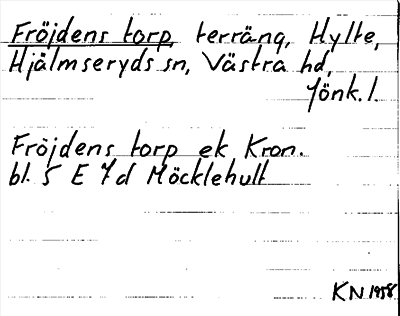 Fröjdens torp, terräng, Hylte,
Hjälmseryds sn, Västra hd,
Jönk. l.
Fröjdens torp ek Kron.
bl. 5 E 7d Möcklehult
KN 1958